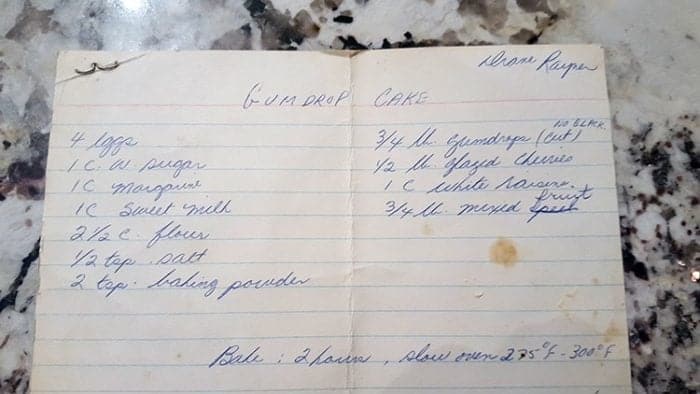 Diane Rayner
GUMDROP CAKE
4 eggs
1 C. W. sugar
1 C margarine
1 C Sweet milk
2 1/2 c. flour
1/2 tsp. salt
2 tsp. baking powder
NO BLACK
3/4 lb. gumdrops (cut)
1/2 lb. glazed cherries
1 C white raisins.
3/4 lb. mixed fruit
Bake : 2 hours, slow oven 275°F - 300°F